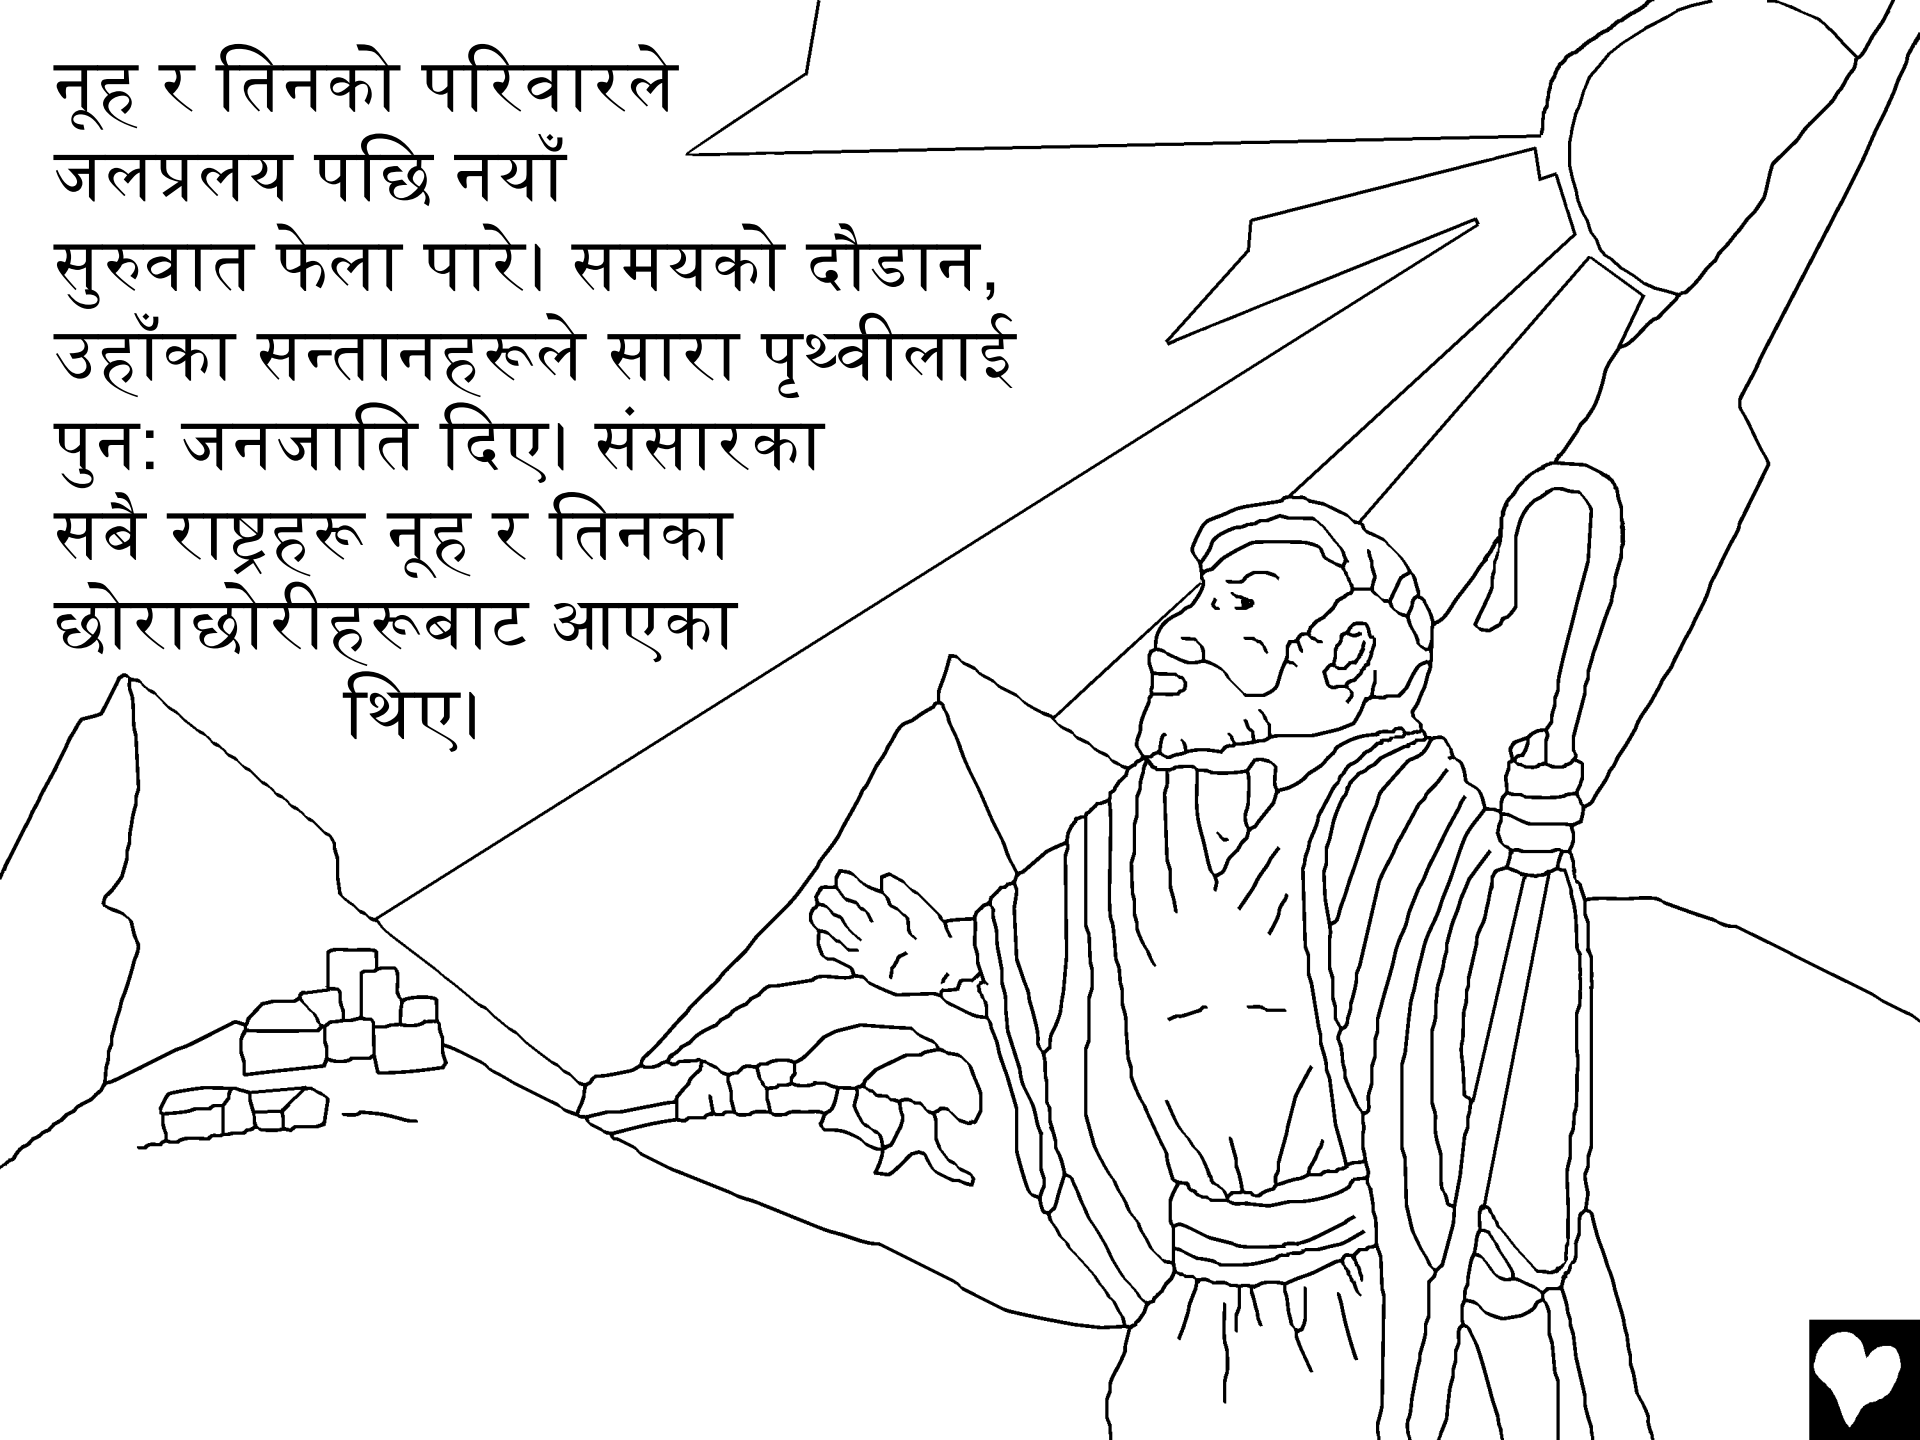 नूह र तिनको परिवारले
जलप्रलय पछि नयाँ
सुरुवात फेला पारे। समयको दौडान,
उहाँका सन्तानहरूले सारा पृथ्वीलाई
पुन: जनजाति दिए। संसारका
सबै राष्ट्रहरू नूह र तिनका
छोराछोरीहरूबाट आएका
थिए।